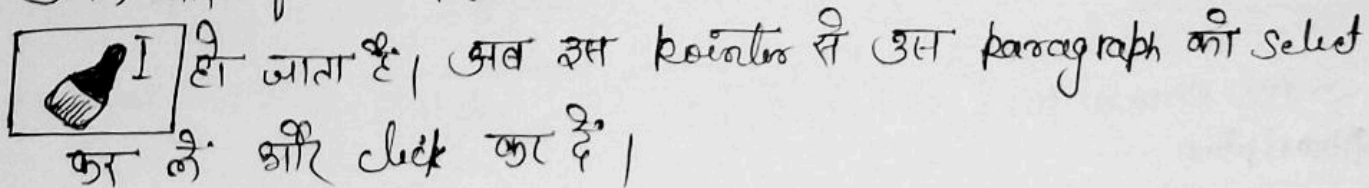 I हो जाता है। अब इस pointer से उस paragraph को select
कर लें और click कर दें।